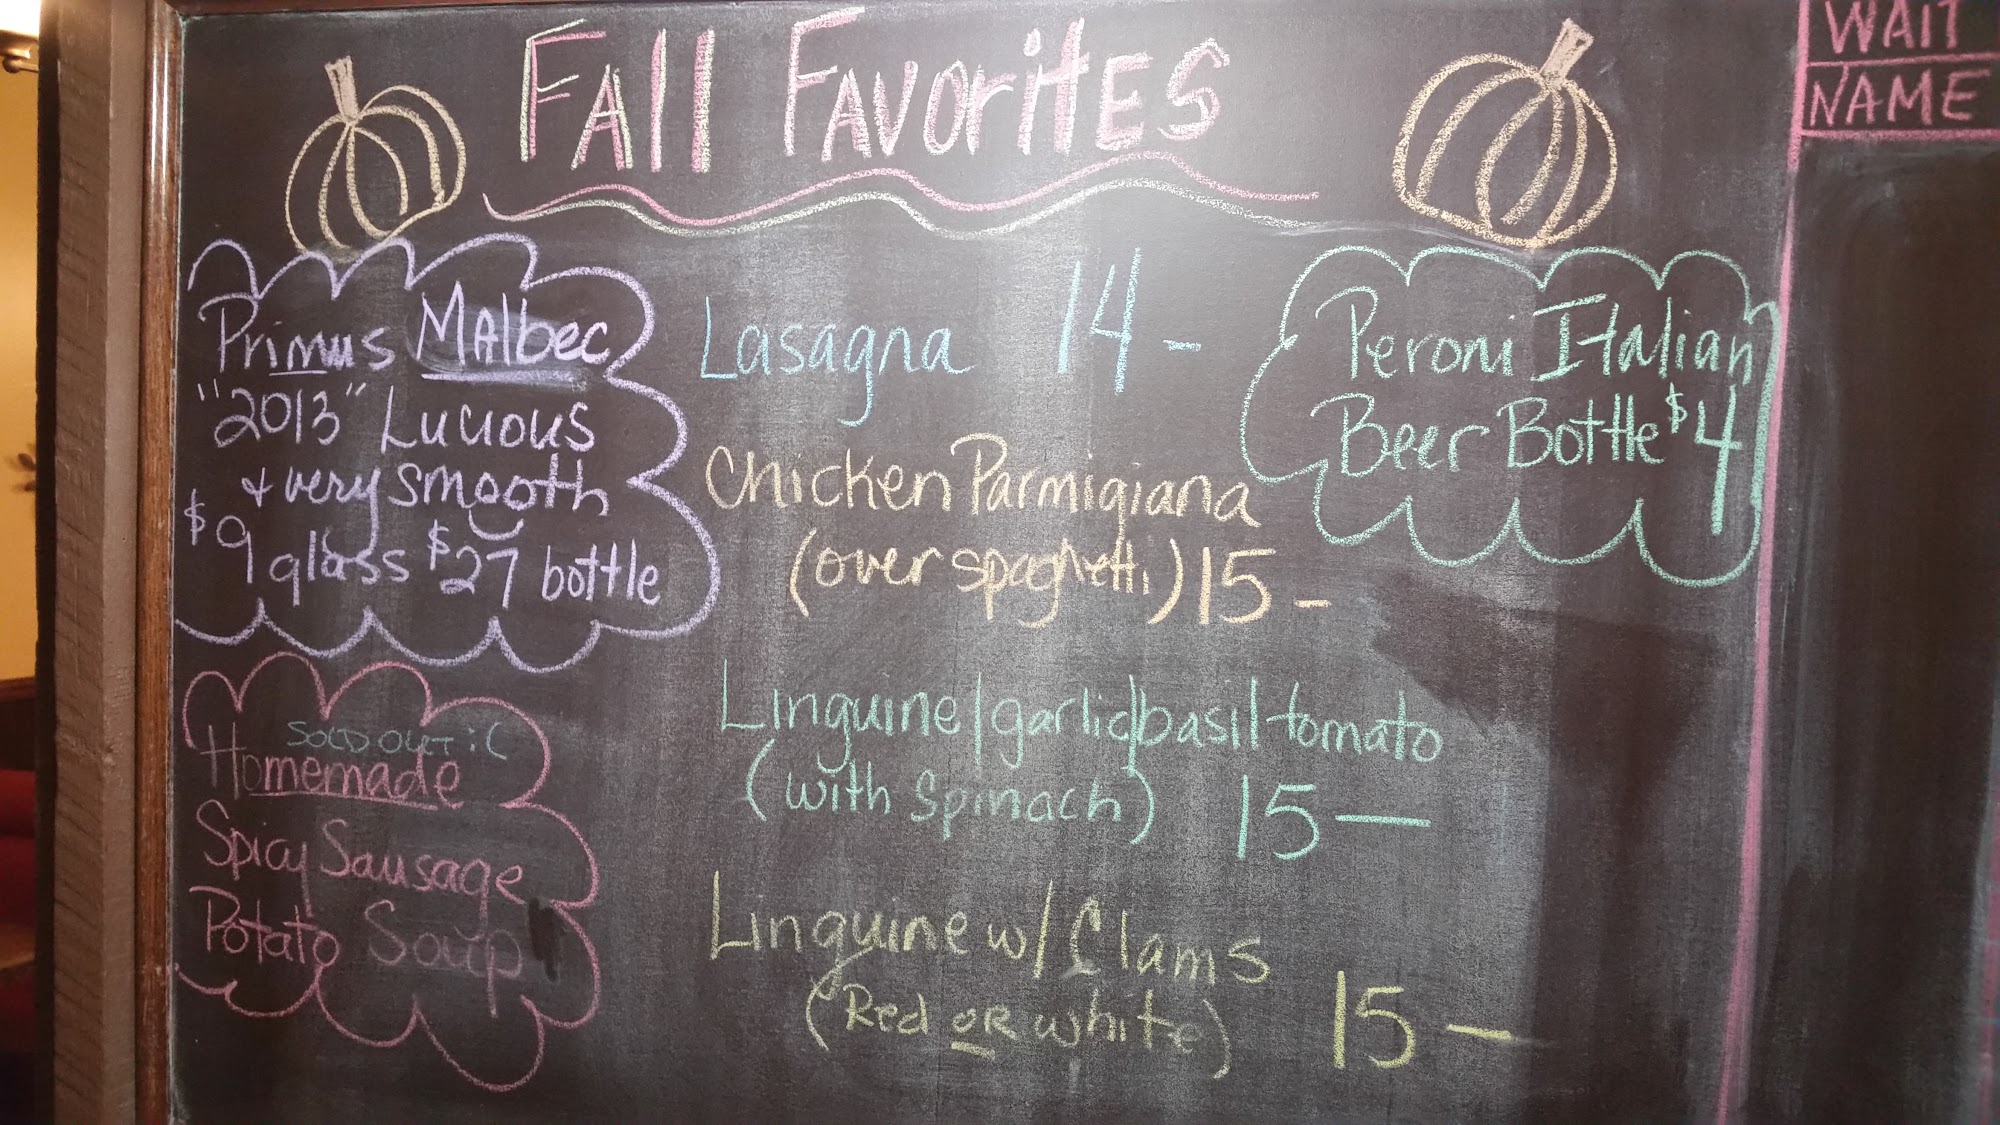 Fall Favorites
Primus Malbec
"2013" Lucious
+ very smooth
$9 glass $27 bottle
SOLD OUT :(
Homemade
Spicy Sausage
Potato Soup
Lasagna 14-
Chicken Parmigiana
(over spaghetti) 15-
Linguine/garlic/basil/tomato
(with Spinach) 15-
Linguine w/ Clams
(Red OR white) 15-
Peroni Italian
Beer Bottle $4
WAIT
NAME